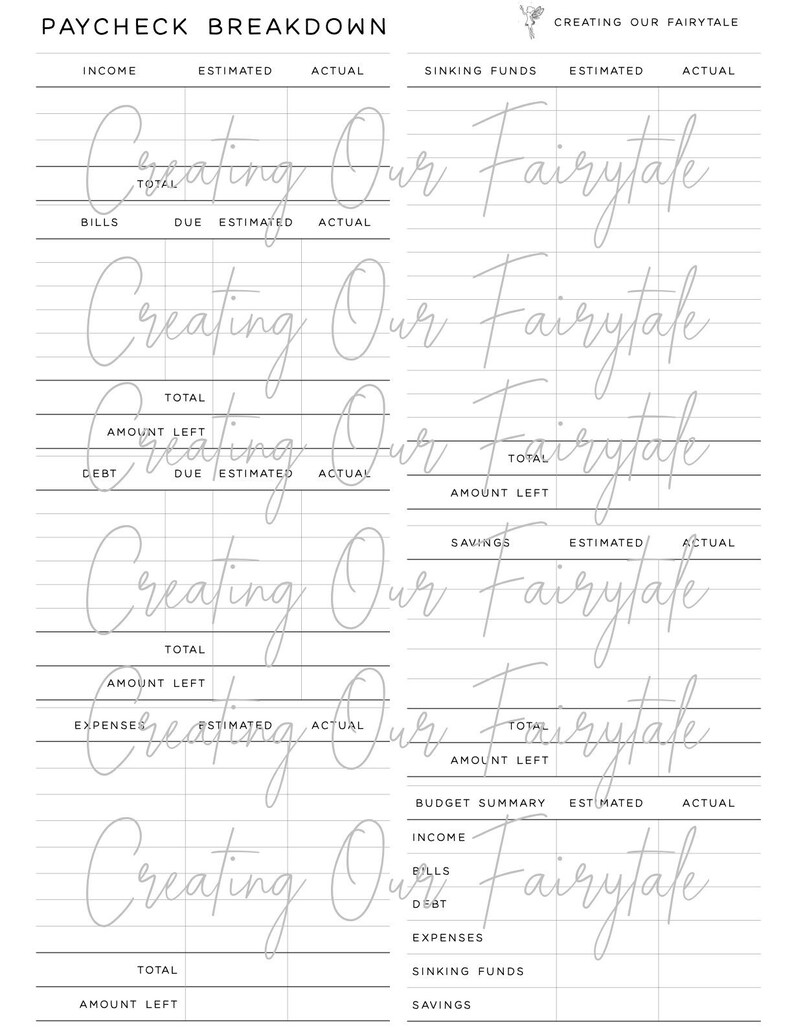 PAYCHECK BREAKDOWN
INCOME ESTIMATED ACTUAL
TOTAL
BILLS DUE ESTIMATED ACTUAL
TOTAL
AMOUNT LEFT
DEBT DUE ESTIMATED ACTUAL
TOTAL
AMOUNT LEFT
EXPENSES ESTIMATED ACTUAL
TOTAL
AMOUNT LEFT
CREATING OUR FAIRYTALE
SINKING FUNDS ESTIMATED ACTUAL
TOTAL
AMOUNT LEFT
SAVINGS ESTIMATED ACTUAL
TOTAL
AMOUNT LEFT
BUDGET SUMMARY ESTIMATED ACTUAL
INCOME
BILLS
DEBT
EXPENSES
SINKING FUNDS
SAVINGS
Creating Our Fairytale
Creating Our Fairytale
Creating Our Fairytale
Creating Our Fairytale
Creating Our Fairytale
Creating Our Fairytale